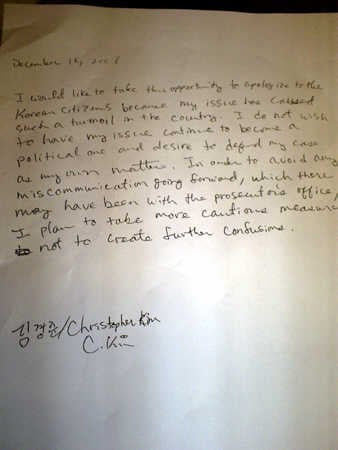 December 14, 2007
I would like to take this opportunity to apologize to the
Korean citizens because my issue has caused
such a turmoil in the country. I do not wish
to have my issue continue to become a
political one and desire to defend my case
as my own matter. In order to avoid any
miscommunication going forward, which there
may have been with the prosecutor's office,
I plan to take more cautious measure
not to create further confusions.
김경준/Christopher Kim
C. Kim